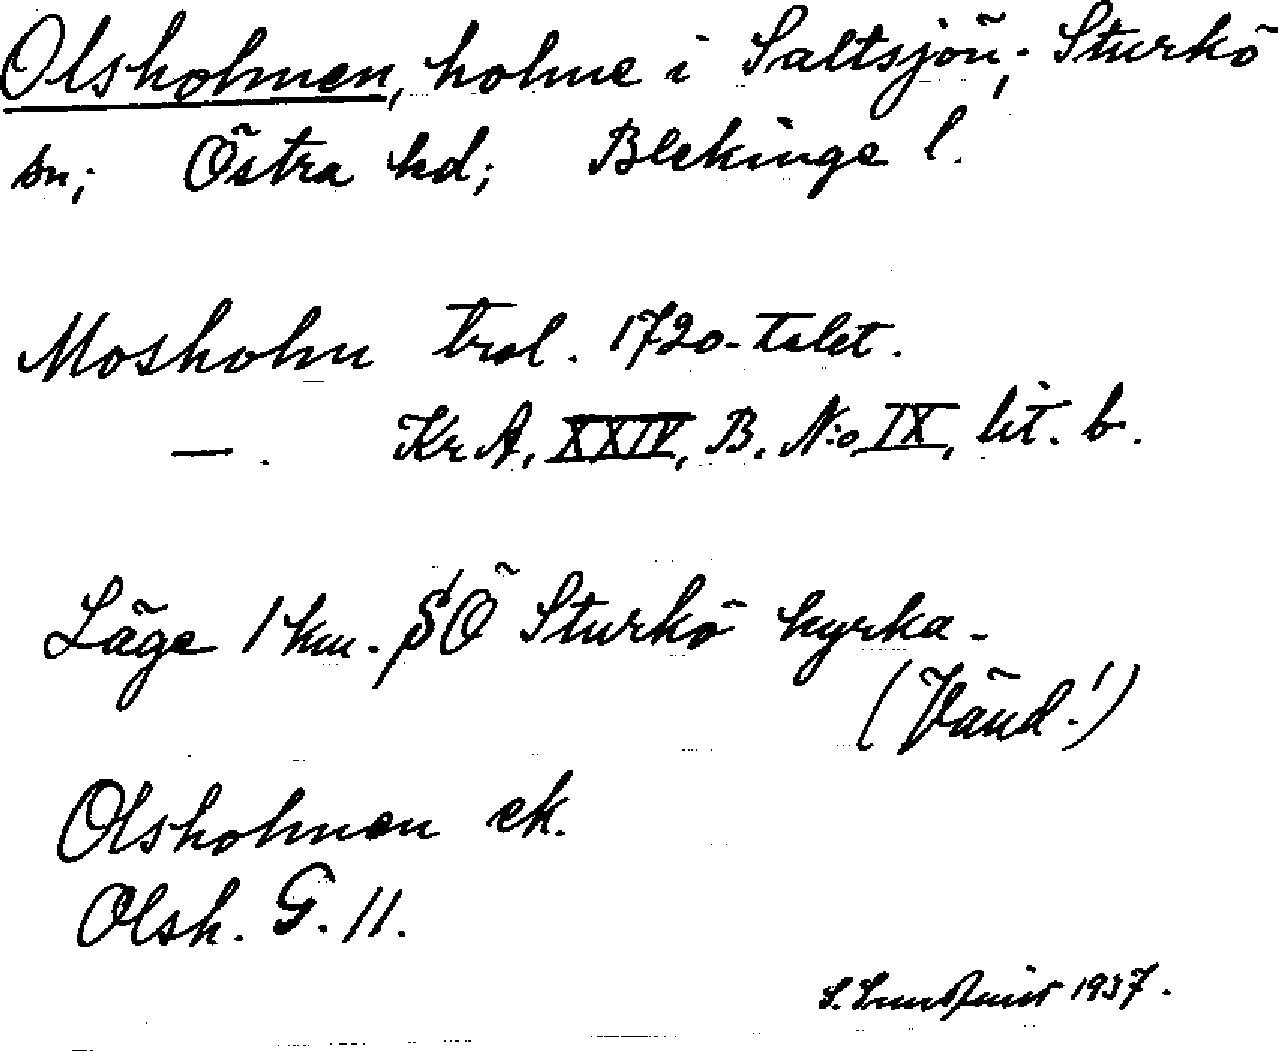 Olsholmen, holme i Saltsjön; Sturkö
sn; Östra hd; Blekinge l.
Mosholm trol. 1720-talet.
— . KrA, XXIV, B. N:o IX, lit. b.
Läge 1 km. SO Sturkö kyrka.
(Vänd!)
Olsholmen ek.
Olsh. G. 11.
S. Lundquist 1937.